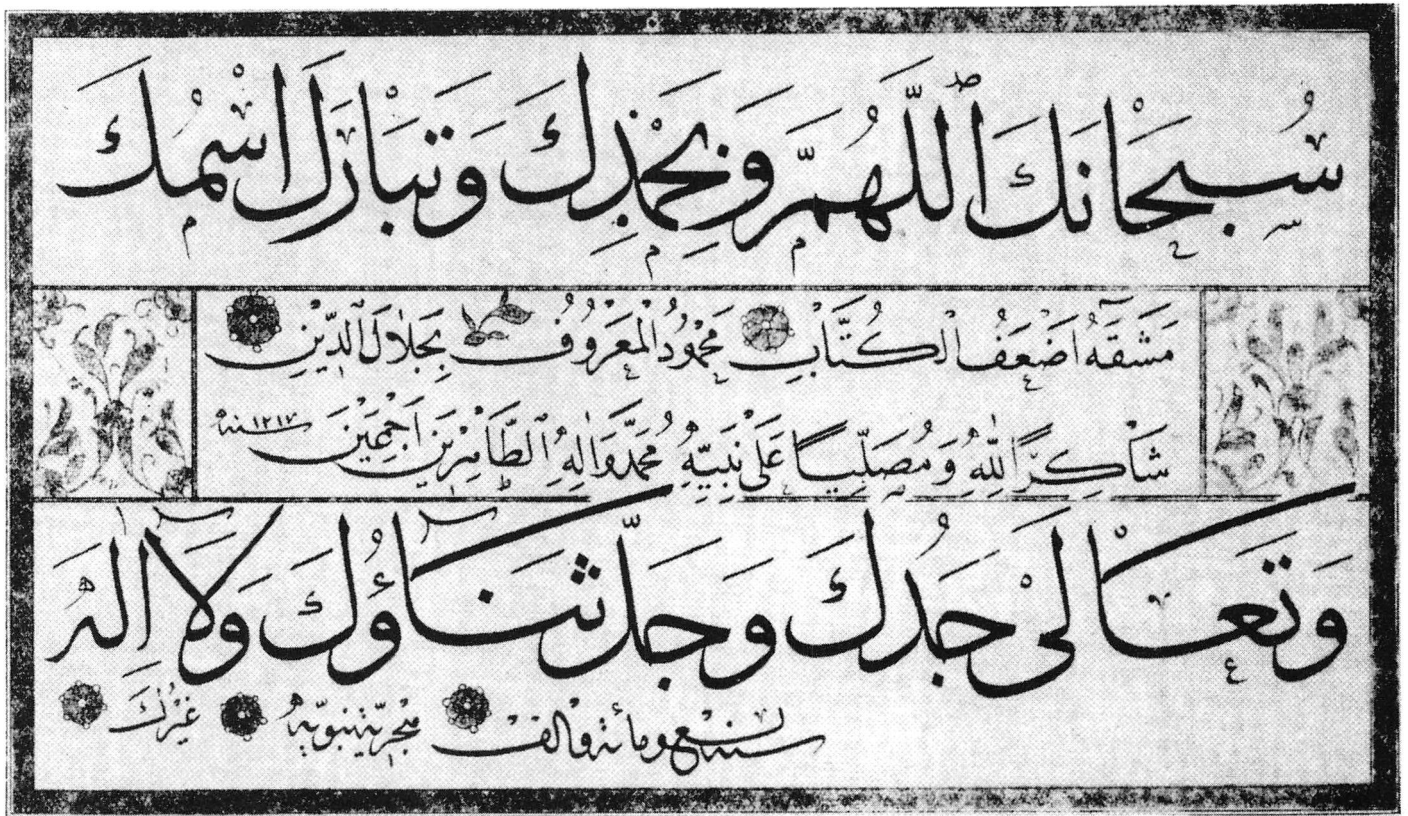 سُبْحَانَكَ ٱللَّهُمَّ وَبِحَمْدِكَ وَتَبَارَكَ اسْمُكَ
مَشَقَهُ اَضْعَفُ الْكُتَّابِ مَحْمُودُ الْمَعْرُوفُ بِجَلَالِ الدِّينِ
شَاكِرًا لِلّٰهِ وَمُصَلِّيًا عَلَى نَبِيِّهِ مُحَمَّدٍ وَاٰلِهِ الطَّاهِرِينَ اَجْمَعِينَ سنه ١٢١٧
وَتَعَالَى جَدُّكَ وَجَلَّ ثَنَاؤُكَ وَلَا اِلٰهَ
غَيْرُكَ هجرية نبويه سنه تسع ومائة والف